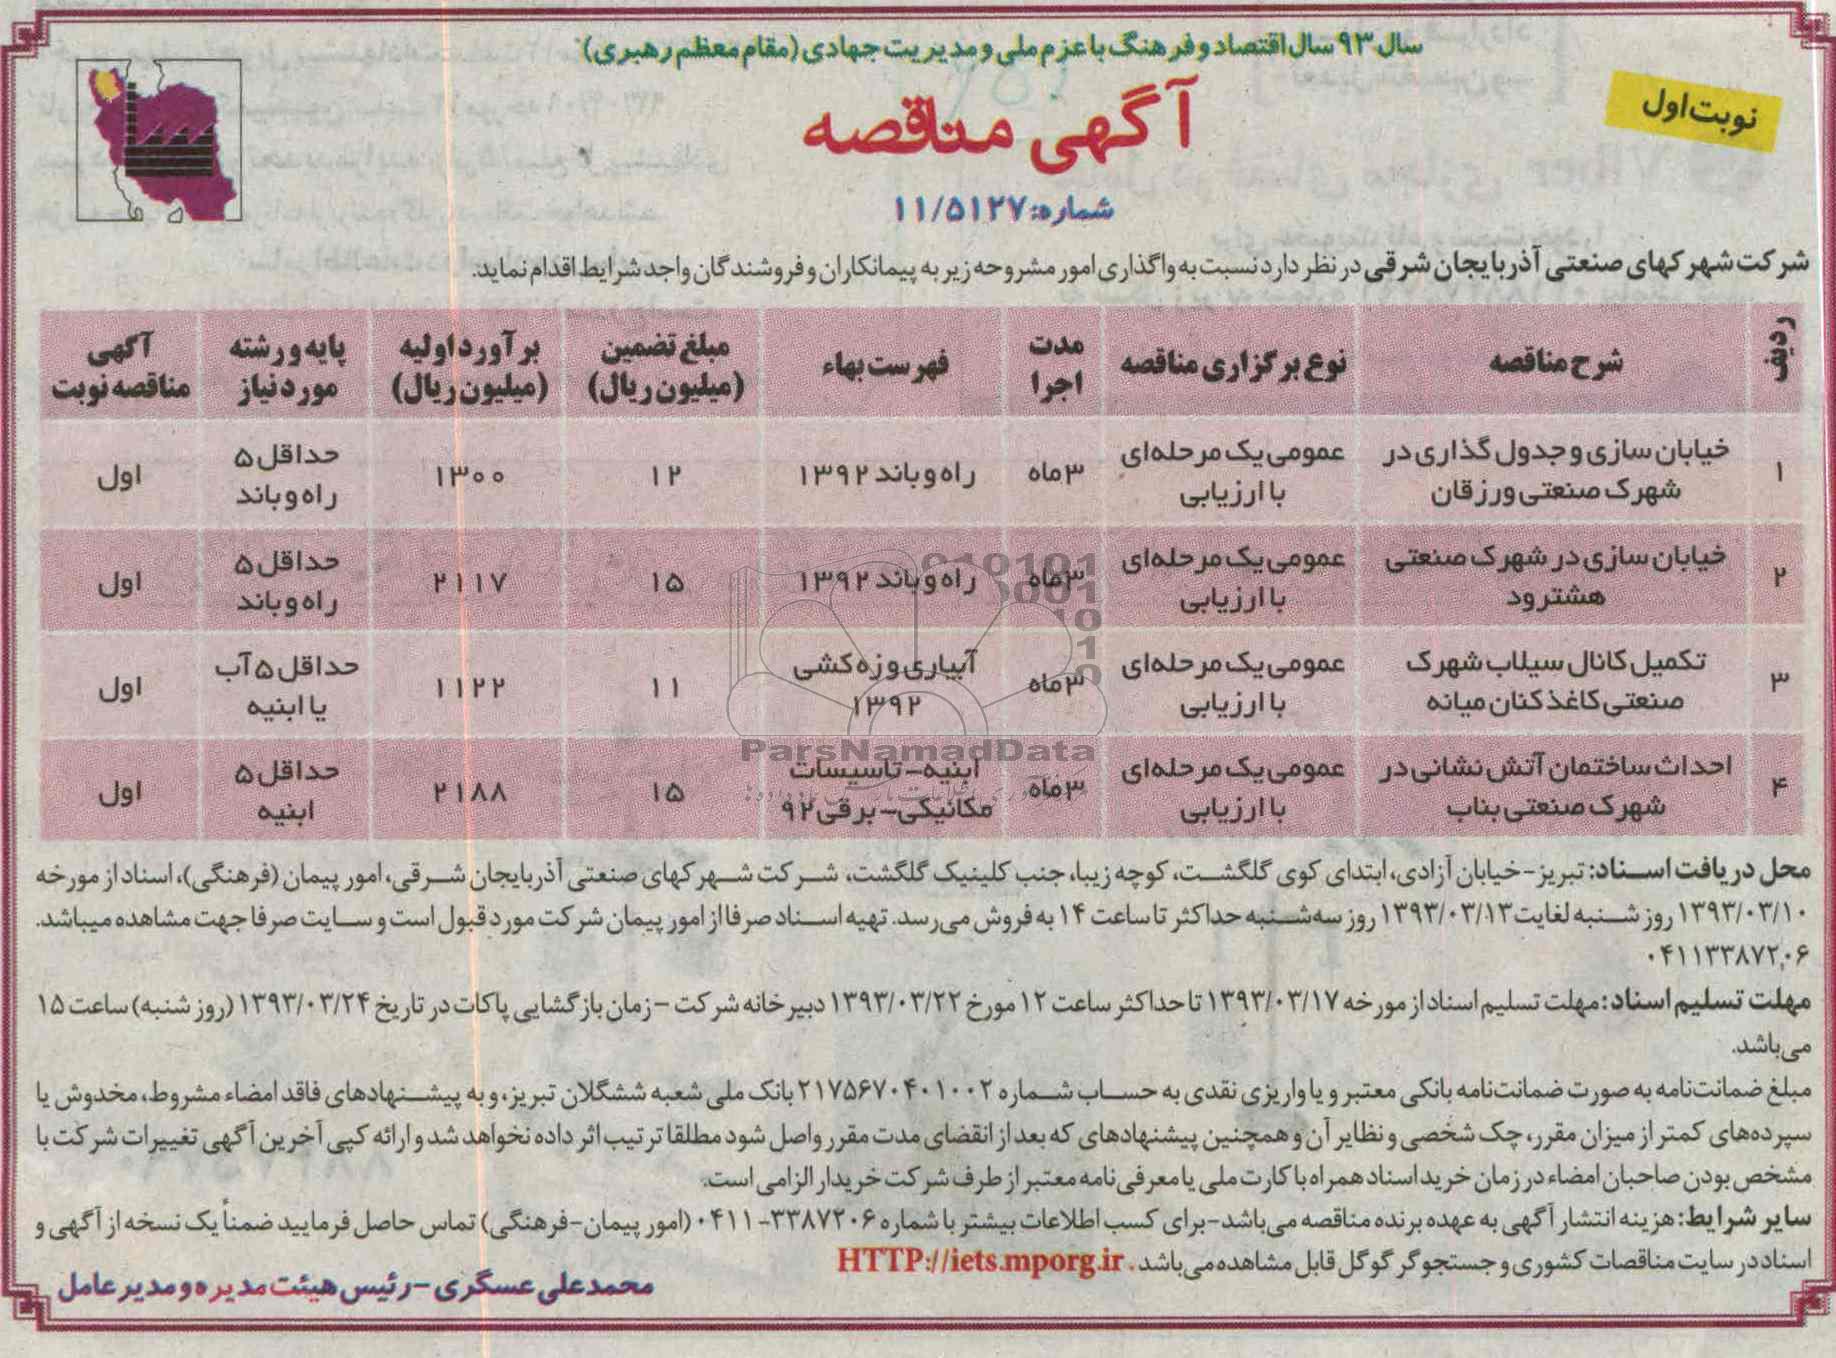 سال ۹۳ سال اقتصاد و فرهنگ با عزم ملی و مدیریت جهادی (مقام معظم رهبری)
نوبت اول
آگهی مناقصه
شماره: ۱۱/۵۱۲۷
شرکت شهرکهای صنعتی آذربایجان شرقی در نظر دارد نسبت به واگذاری امور مشروحه زیر به پیمانکاران و فروشندگان واجد شرایط اقدام نماید.
ردیف | شرح مناقصه | نوع برگزاری مناقصه | مدت اجرا | فهرست بهاء | مبلغ تضمین (میلیون ریال) | برآورد اولیه (میلیون ریال) | پایه و رشته مورد نیاز | آگهی مناقصه نوبت
۱ | خیابان سازی و جدول گذاری در شهرک صنعتی ورزقان | عمومی یک مرحله‌ای با ارزیابی | ۳ ماه | راه و باند ۱۳۹۲ | ۱۲ | ۱۳۰۰ | حداقل ۵ راه و باند | اول
۲ | خیابان سازی در شهرک صنعتی هشترود | عمومی یک مرحله‌ای با ارزیابی | ۳ ماه | راه و باند ۱۳۹۲ | ۱۵ | ۲۱۱۷ | حداقل ۵ راه و باند | اول
۳ | تکمیل کانال سیلاب شهرک صنعتی کاغذکنان میانه | عمومی یک مرحله‌ای با ارزیابی | ۳ ماه | آبیاری و زه کشی ۱۳۹۲ | ۱۱ | ۱۱۲۲ | حداقل ۵ آب یا ابنیه | اول
۴ | احداث ساختمان آتش نشانی در شهرک صنعتی بناب | عمومی یک مرحله‌ای با ارزیابی | ۳ ماه | ابنیه – تاسیسات مکانیکی – برقی ۹۲ | ۱۵ | ۲۱۸۸ | حداقل ۵ ابنیه | اول
ParsNamadData
محل دریافت اسناد: تبریز-خیابان آزادی، ابتدای کوی گلگشت، کوچه زیبا، جنب کلینیک گلگشت، شرکت شهرکهای صنعتی آذربایجان شرقی، امور پیمان (فرهنگی)، اسناد از مورخه
۱۳۹۳/۰۳/۱۰ روز شنبه لغایت ۱۳۹۳/۰۳/۱۳ روز سه‌شنبه حداکثر تا ساعت ۱۴ به فروش می‌رسد. تهیه اسناد صرفا از امور پیمان شرکت مورد قبول است و سایت صرفا جهت مشاهده میباشد.
۰۴۱۱۳۳۸۷۲۰۶
مهلت تسلیم اسناد: مهلت تسلیم اسناد از مورخه ۱۳۹۳/۰۳/۱۷ تا حداکثر ساعت ۱۲ مورخ ۱۳۹۳/۰۳/۲۲ دبیرخانه شرکت – زمان بازگشایی پاکات در تاریخ ۱۳۹۳/۰۳/۲۴ (روز شنبه) ساعت ۱۵
می‌باشد.
مبلغ ضمانت‌نامه به صورت ضمانت‌نامه بانکی معتبر و یا واریزی نقدی به حساب شماره ۲۱۷۵۶۷۰۴۰۱۰۰۲ بانک ملی شعبه ششگلان تبریز، و به پیشنهادهای فاقد امضاء مشروط، مخدوش یا
سپرده‌های کمتر از میزان مقرر، چک شخصی و نظایر آن و همچنین پیشنهادهای که بعد از انقضای مدت مقرر واصل شود مطلقا ترتیب اثر داده نخواهد شد و ارائه کپی آخرین آگهی تغییرات شرکت با
مشخص بودن صاحبان امضاء در زمان خرید اسناد همراه با کارت ملی یا معرفی‌نامه معتبر از طرف شرکت خریدار الزامی است.
سایر شرایط: هزینه انتشار آگهی به عهده برنده مناقصه می‌باشد-برای کسب اطلاعات بیشتر با شماره ۳۳۸۷۲۰۶-۰۴۱۱ (امور پیمان-فرهنگی) تماس حاصل فرمایید ضمناً یک نسخه از آگهی و
اسناد در سایت مناقصات کشوری و جستجوگر گوگل قابل مشاهده می‌باشد. HTTP://iets.mporg.ir
محمدعلی عسگری – رئیس هیئت مدیره و مدیر عامل